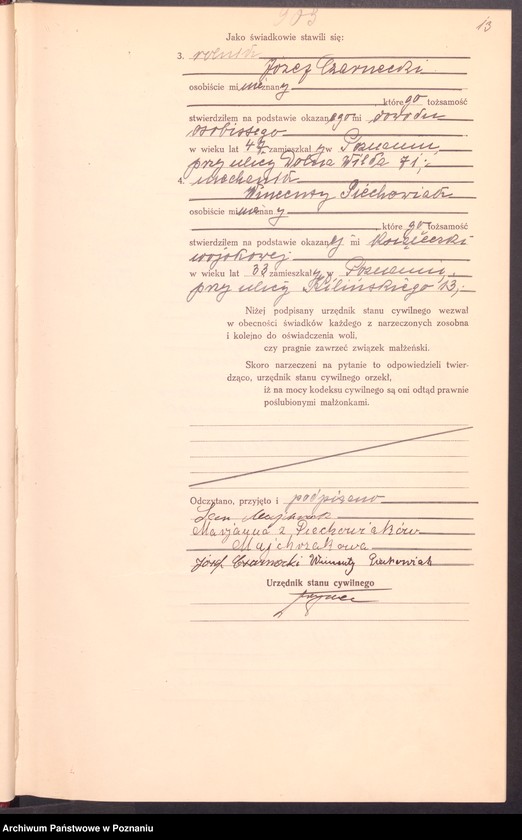 903
13
Jako świadkowie stawili się:
3. rolnik
Józef Czarnecki
osobiście mi nieznany
którego tożsamość
stwierdziłem na podstawie okazanego mi dowodu
osobistego
w wieku lat 47 zamieszkały w Poznaniu,
przy ulicy Dolna Wilda 71;-
4. mechanik
Wincenty Piechowiak
osobiście mi nieznany
którego tożsamość
stwierdziłem na podstawie okazanej mi książeczki
wojskowej
w wieku lat 33 zamieszkały w Poznaniu,
przy ulicy Kilińskiego 13;-
Niżej podpisany urzędnik stanu cywilnego wezwał
w obecności świadków każdego z narzeczonych zosobna
i kolejno do oświadczenia woli,
czy pragnie zawrzeć związek małżeński.
Skoro narzeczeni na pytanie to odpowiedzieli twier-
dząco, urzędnik stanu cywilnego orzekł,
iż na mocy kodeksu cywilnego są oni odtąd prawnie
poślubionymi małżonkami.
Odczytano, przyjęto i podpisano
Jan Majchrzak
Marjanna z Piechowiaków
Majchrzakowa
Józef Czarnecki Wincenty Piechowiak
Urzędnik stanu cywilnego
Archiwum Państwowe w Poznaniu